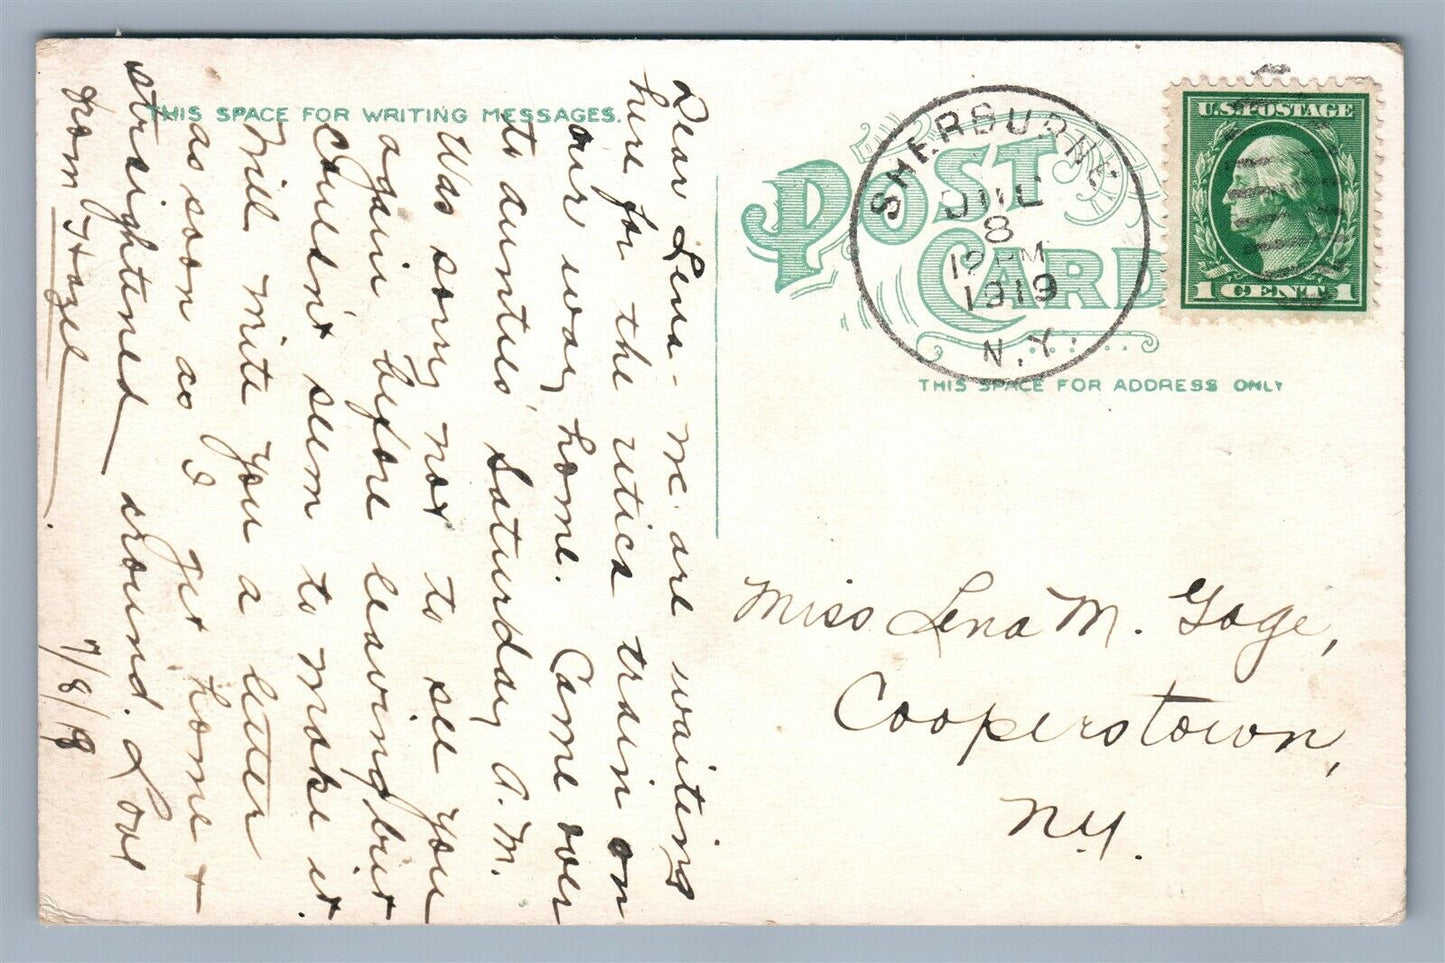 THIS SPACE FOR WRITING MESSAGES.
Dear Lena - We are waiting
here for the utica train on
our way home. Came over
to aunties' Saturday A.M.
Was sorry not to see you
again before leaving but
Couldn't seem to make it.
Will write you a letter
as soon as I get home +
straightened around. Love
from Hazel.
7/8/19
POST CARD
THIS SPACE FOR ADDRESS ONLY
SHERBURNE
JUL
8
12 PM
1919
N.Y.
U.S. POSTAGE
1 CENT 1
Miss Lena M. Gage,
Cooperstown,
N.Y.